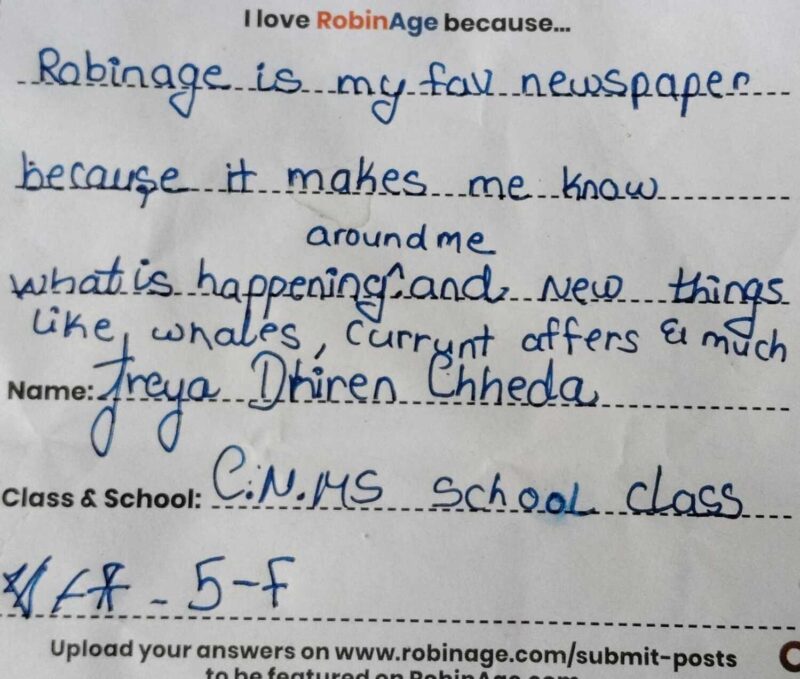 I love RobinAge because...
Robinage is my fav newspaper
because it makes me know
around me
what is happening^ and new things
like, whales, currynt affers & much
Name: Dhiren Chheda
Class & School: C.N.MS school class
5-F
Upload your answers on www.robinage.com/submit-posts
to be featured on RobinAge.com